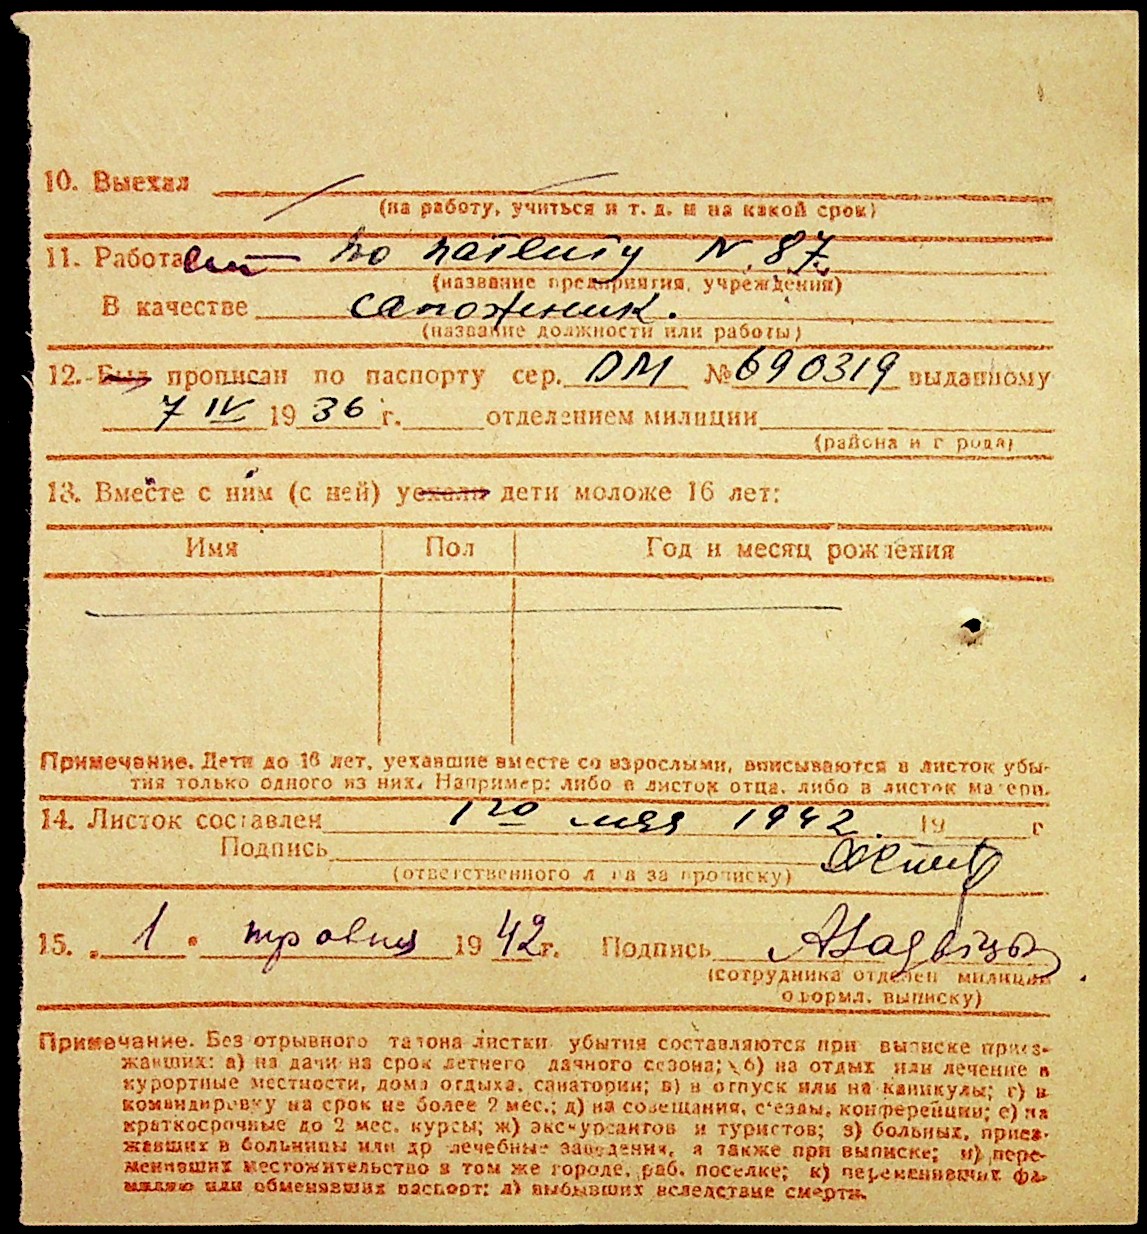 10. Выехал
(на работу, учиться и т. д. и на какой срок)
11. Работает по патенту N. 87.
(название предприятия, учреждения)
В качестве сапожник.
(название должности или работы)
12. Был прописан по паспорту сер. ДМ № 690319 выданному
7 IV 1936 г. отделением милиции
(района и города)
13. Вместе с ним (с ней) уехали дети моложе 16 лет:
Имя Пол Год и месяц рождения
Примечание. Дети до 16 лет, уехавшие вместе со взрослыми, вписываются в листок убы-
тия только одного из них. Например: либо в листок отца, либо в листок матери.
14. Листок составлен 1го мая 1942. 19 г
Подпись
(ответственного лица за прописку)
15. „ 1 " травня 1942 г. Подпись
(сотрудника отделен милиции
оформл. выписку)
Примечание. Без отрывного талона листки убытия составляются при выписке приез-
жавших: а) на дачи на срок летнего дачного сезона; б) на отдых или лечение в
курортные местности, дома отдыха, санатории; в) в отпуск или на каникулы; г) в
командировку на срок не более 2 мес.; д) на совещания, с'езды, конференции; е) на
краткосрочные до 2 мес. курсы; ж) экскурсантов и туристов; з) больных, приез-
жавших в больницы или др лечебные заведения, а также при выписке; и) пере-
менивших местожительство в том же городе, раб. поселке; к) переменивших фа-
милию или обменявших паспорт; л) выбывших вследствие смерти.